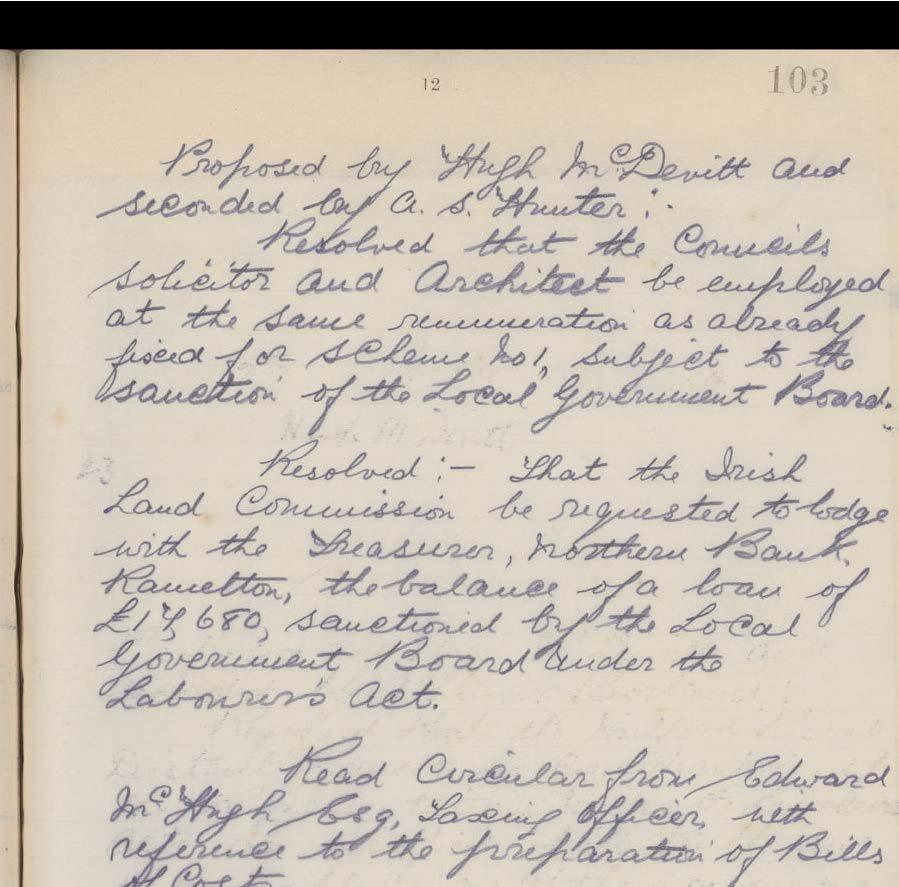 12
103
Proposed by Hugh McDevitt and
seconded by A. S. Hunter :-
Resolved that the Councils
solicitor and Architect be employed
at the same remuneration as already
fixed for Scheme No 1, subject to the
sanction of the Local Government Board.
Resolved :- That the Irish
Land Commission be requested to lodge
with the Treasurer, Northern Bank,
Ramelton, the balance of a loan of
sanctioned by the Local
Government Board under the
Labourer's Act.
Read Circular from Edward
McHugh Esq, Taxing Officer, with
reference to the preparation of Bills
of Costs